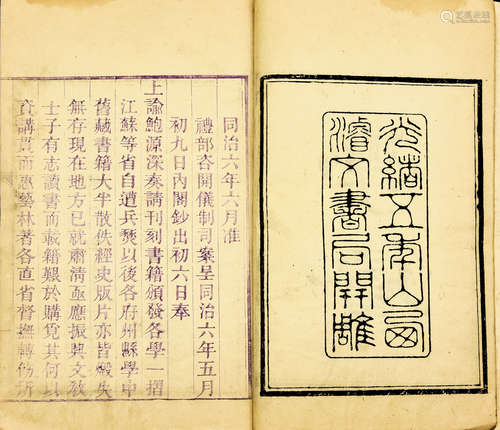 光緒五年山西
濬文書局開雕
同治六年六月准
禮部咨開儀制司案呈同治六年五月
初九日內閣鈔出初六日奉
上諭鮑源深奏請刊刻書籍頒發各學一摺
江蘇等省自遭兵燹以後各府州縣學中
舊藏書籍大半散佚經史版片亦皆燬失
無存現在地方已就肅清亟應振興文教
士子有志讀書而載籍艱於購覓其何以
資講貫而惠藝林著各直省督撫轉飭所